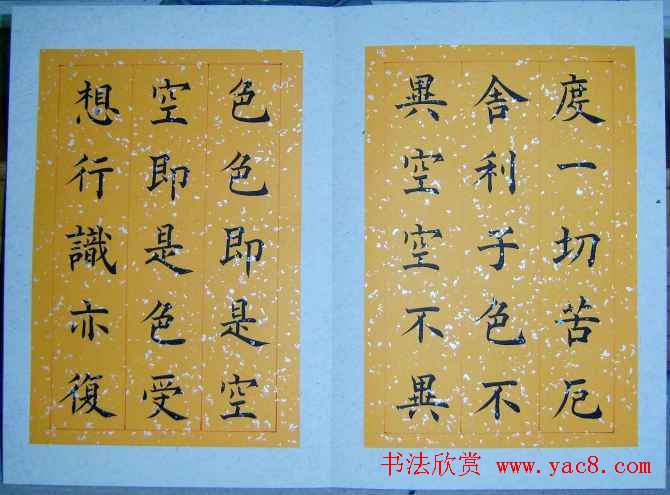 度一切苦厄
舍利子色不
異空空不異
色色即是空
空即是色受
想行識亦復
书法欣赏 www.yac8.com